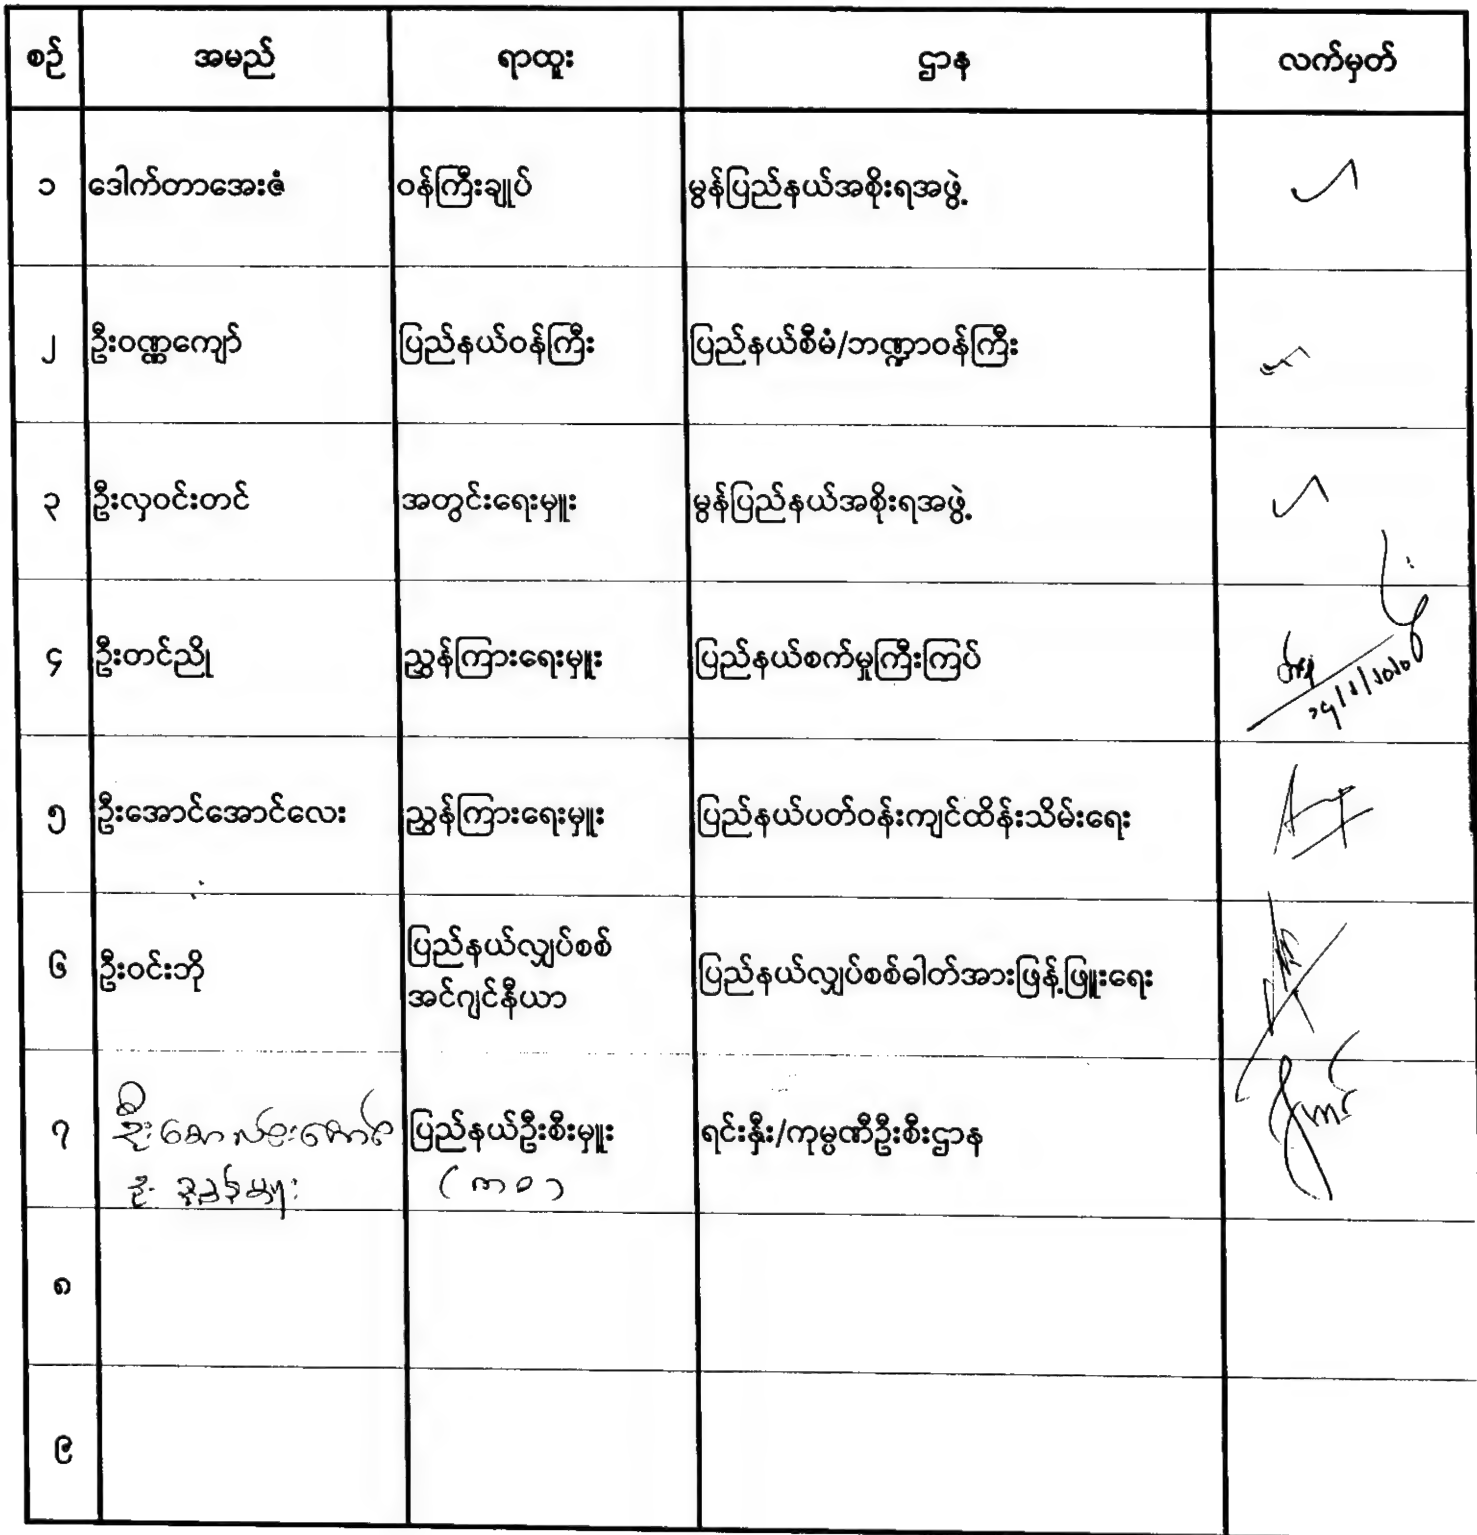 စဉ် အမည် ရာထူး ဌာန လက်မှတ်
၁ ဒေါက်တာအေးဇံ ဝန်ကြီးချုပ် မွန်ပြည်နယ်အစိုးရအဖွဲ့
၂ ဦးဝဏ္ဏကျော် ပြည်နယ်ဝန်ကြီး ပြည်နယ်စီမံ/ဘဏ္ဍာဝန်ကြီး
၃ ဦးလှဝင်းတင် အတွင်းရေးမှူး မွန်ပြည်နယ်အစိုးရအဖွဲ့
၄ ဦးတင်ညို ညွှန်ကြားရေးမှူး ပြည်နယ်စက်မှုကြီးကြပ်
၅ ဦးအောင်အောင်လေး ညွှန်ကြားရေးမှူး ပြည်နယ်ပတ်ဝန်းကျင်ထိန်းသိမ်းရေး
၆ ဦးဝင်းဘို ပြည်နယ်လျှပ်စစ် ပြည်နယ်လျှပ်စစ်ဓါတ်အားဖြန့်ဖြူးရေး
အင်ဂျင်နီယာ
၇ ပြည်နယ်ဦးစီးမှူး ရင်းနှီး/ကုမ္ပဏီဦးစီးဌာန
(ကစ)
၈
၉